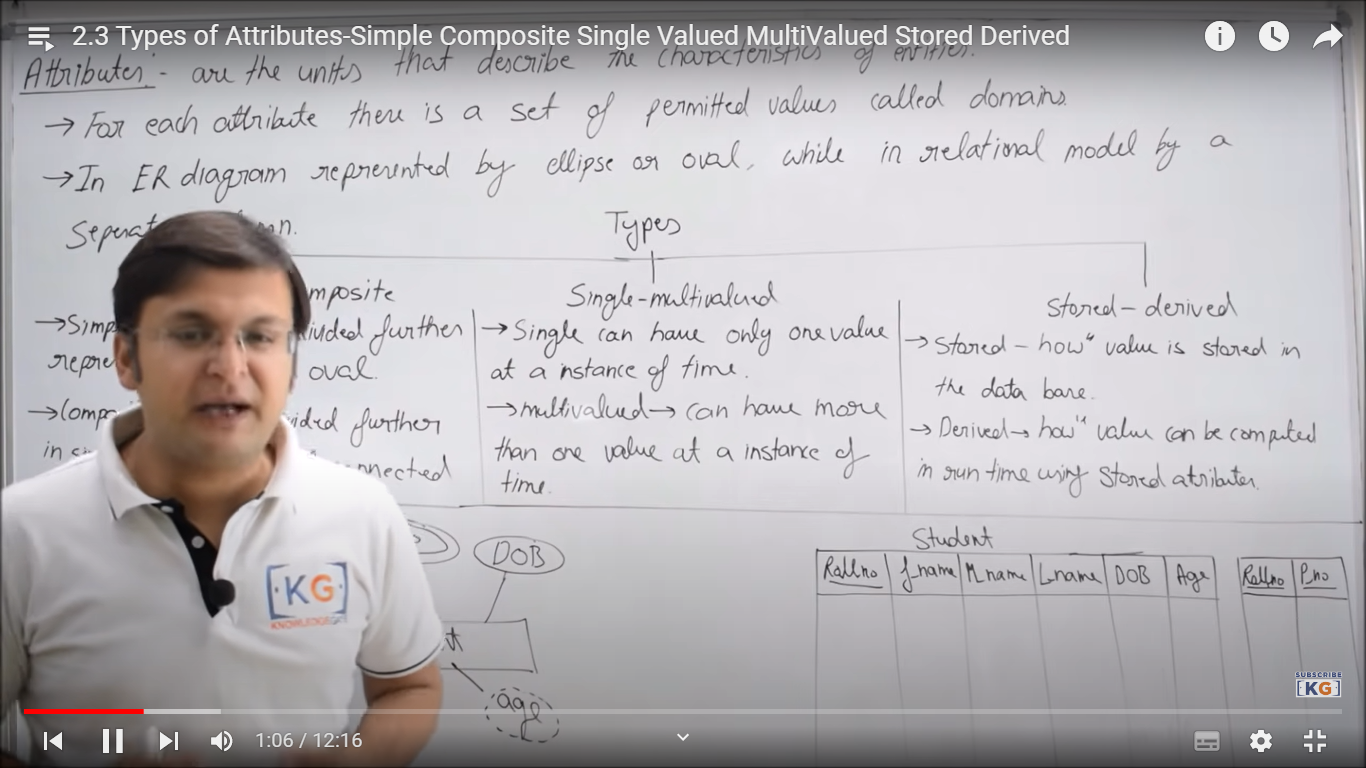 2.3 Types of Attributes-Simple Composite Single Valued MultiValued Stored Derived
Attributes:- are the units that describe the characteristics of entities.
→ For each attribute there is a set of permitted values called domains
→ In ER diagram represented by ellipse or oval, while in relational model by a
Types
Single-multivalued
Stored-derived
further
oval.
further
→ Single can have only one value
at a instance of time.
→ multivalued → can have more
than one value at a instance of
time.
→ Stored - how" value is stored in
the data base.
→ Derived → how" value can be computed
in run time using Stored atributes.
DOB
age
Student
Rollno F_name M_name L_name DOB Age
Rollno P_no
KG
KNOWLEDGE
SUBSCRIBE
KG
1:06 / 12:16